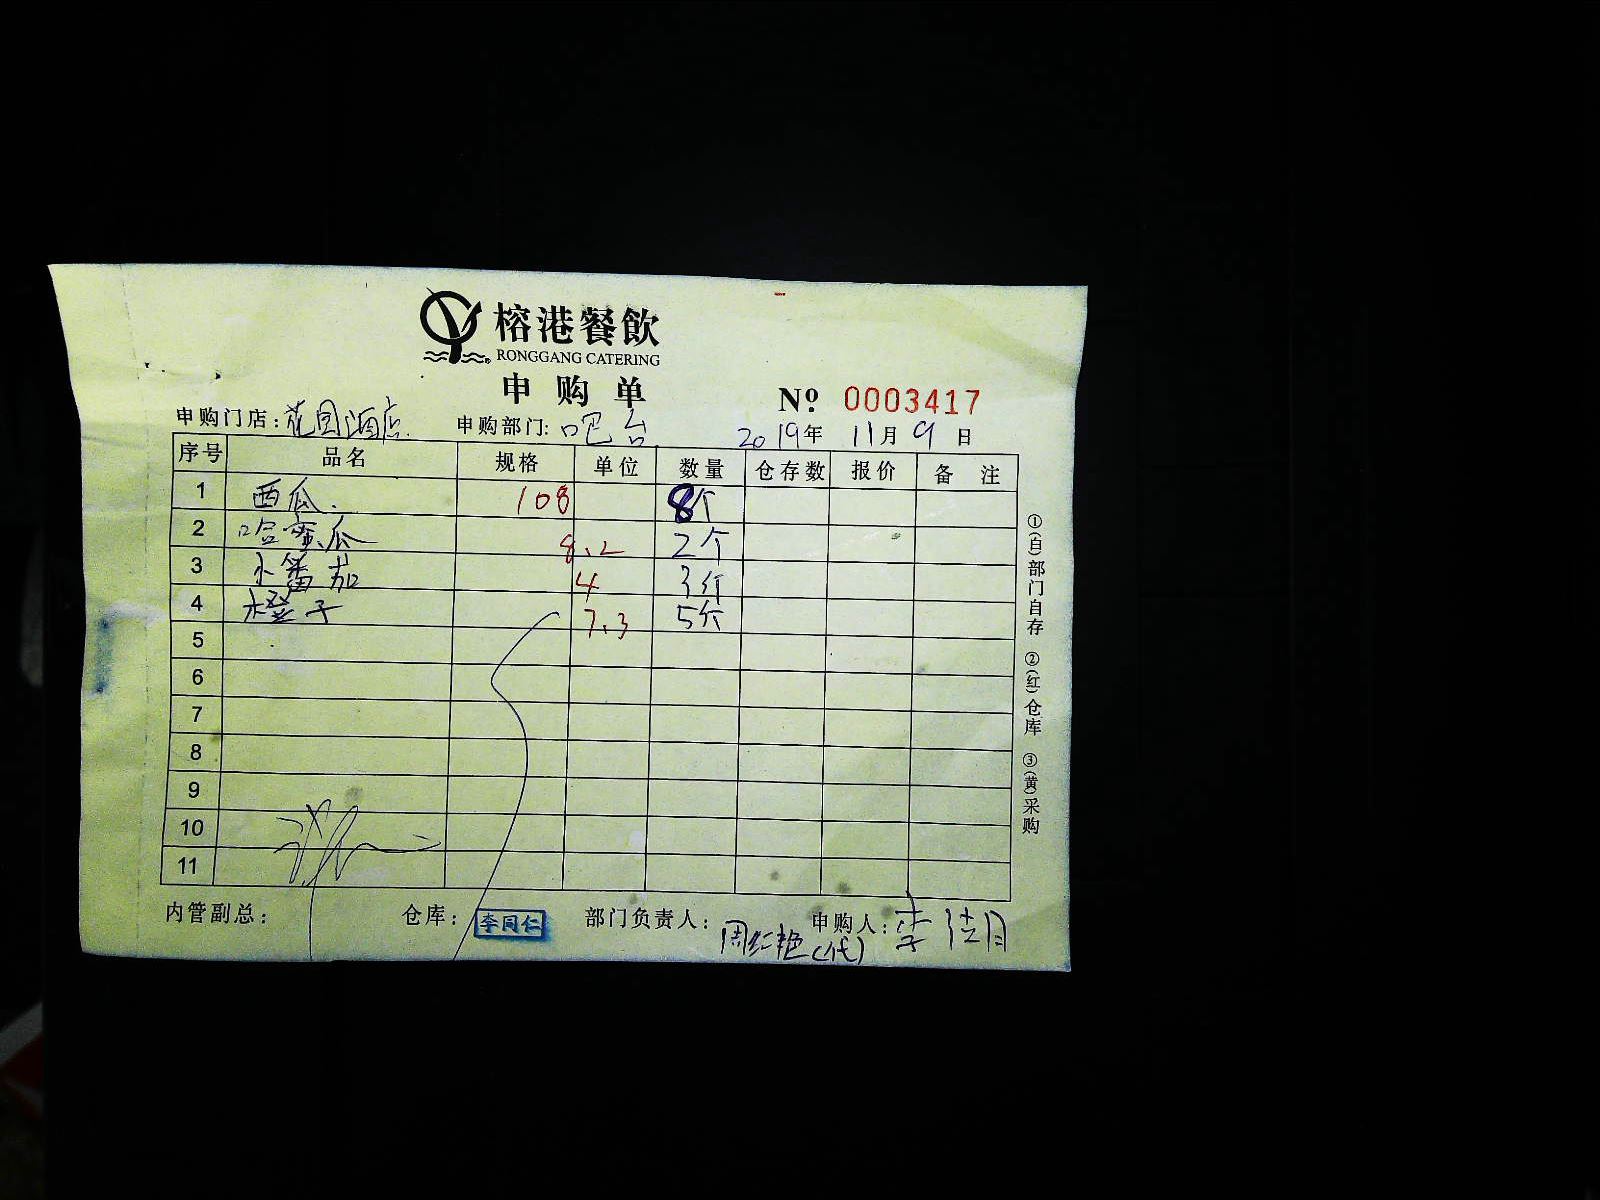 榕港餐飲
RONGGANG CATERING
申购单
Nº 0003417
申购门店:花园酒店 申购部门:吧台 2019年11月9日
序号 品名 规格 单位 数量 仓存数 报价 备注
1 西瓜 108 8个
2 哈蜜瓜 8.2 2个
3 小番茄 4 3斤
4 橙子 7.3 5个
5
6
7
8
9
10
11
内管副总: 仓库: 李同仁 部门负责人: 周红艳(代) 申购人: 李佳月
①(白)部门自存 ②(红)仓库 ③(黄)采购